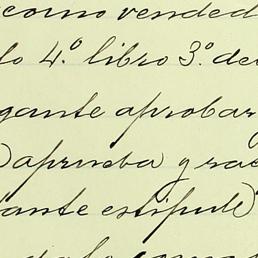 como vended
lo 4.º libro 3.º del
gante aprobar
) aprueba y rac
tante estipule)